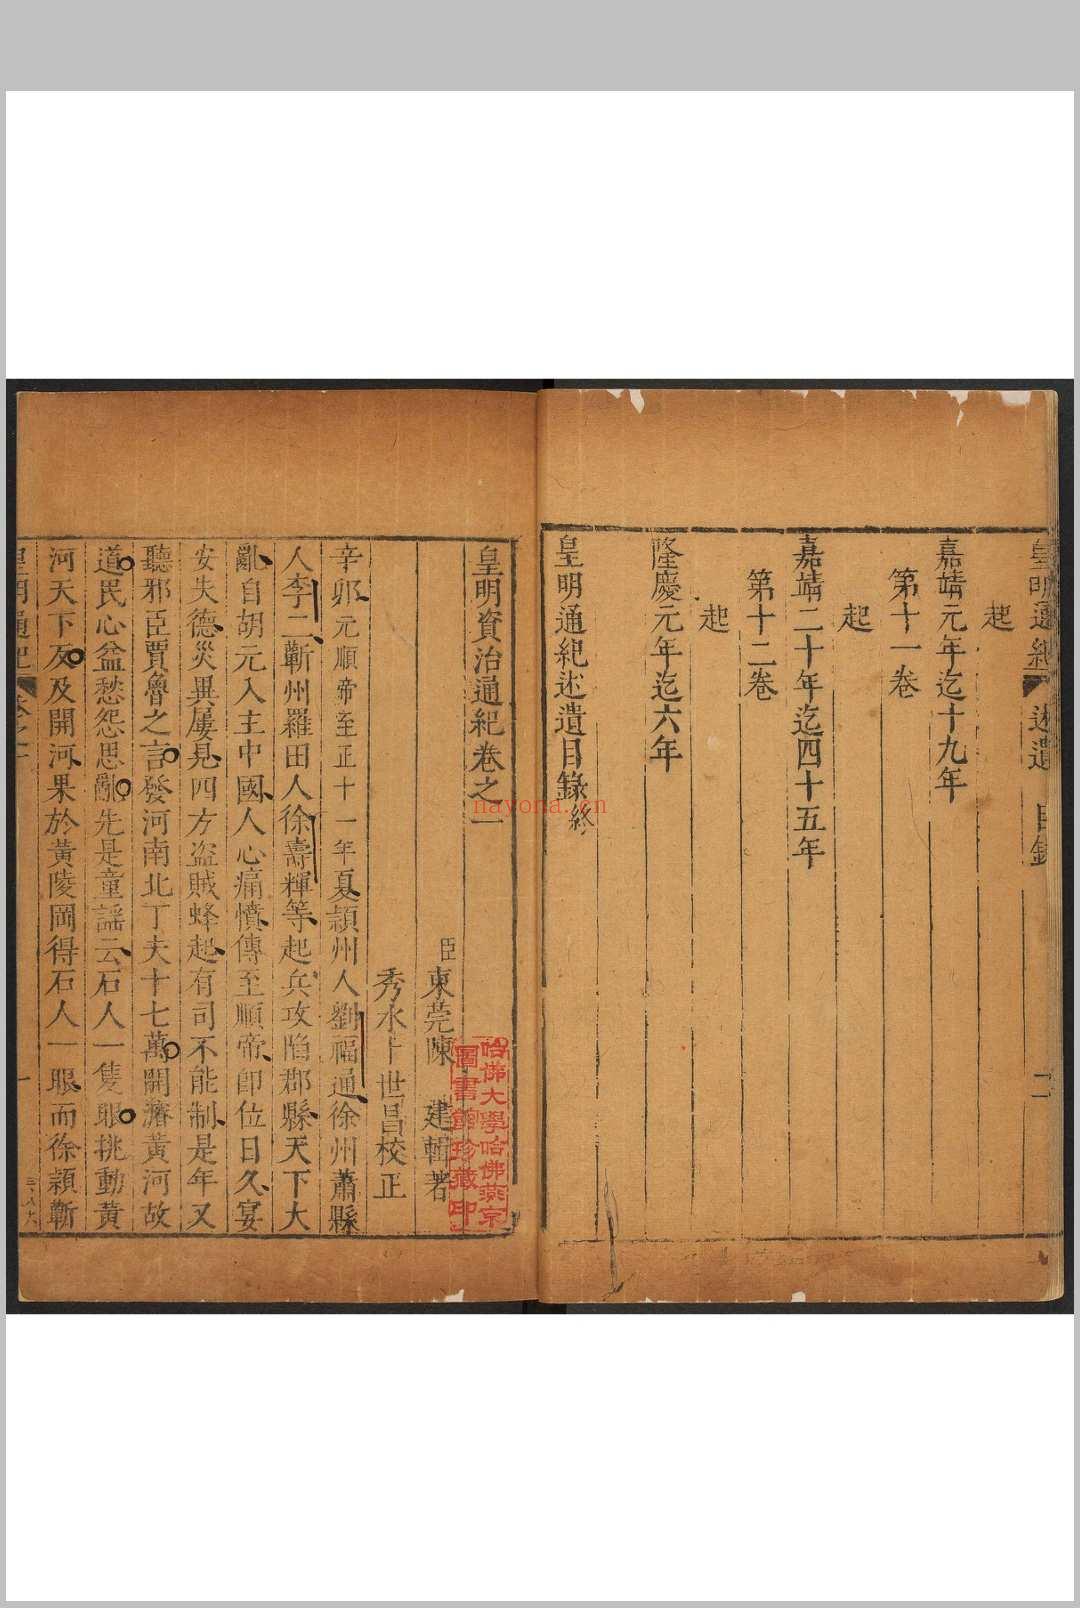 皇明通紀 述遺 目錄
起
嘉靖元年迄十九年
第十一卷
起
嘉靖二十年迄四十五年
第十二卷
起
隆慶元年迄六年
皇明通紀述遺目錄終
二
皇明資治通紀卷之一
臣東莞陳 建輯著
秀水卜世昌校正
辛卯元順帝至正十一年夏潁州人劉福通徐州蕭縣
人李二蘄州羅田人徐壽輝等起兵攻陷郡縣天下大
亂自胡元入主中國人心痛憤傳至順帝卽位日久宴
安失德災異屢見四方盜賊蜂起有司不能制是年又
聽邪臣賈魯之言發河南北丁夫十七萬開濬黃河故
道民心益愁怨思亂先是童謠云石人一隻眼挑動黃
河天下反及開河果於黃陵岡得石人一眼而徐潁蘄
皇明通紀 卷之一
一
哈佛大學哈佛燕京
圖書館珍藏印
nayona.cn